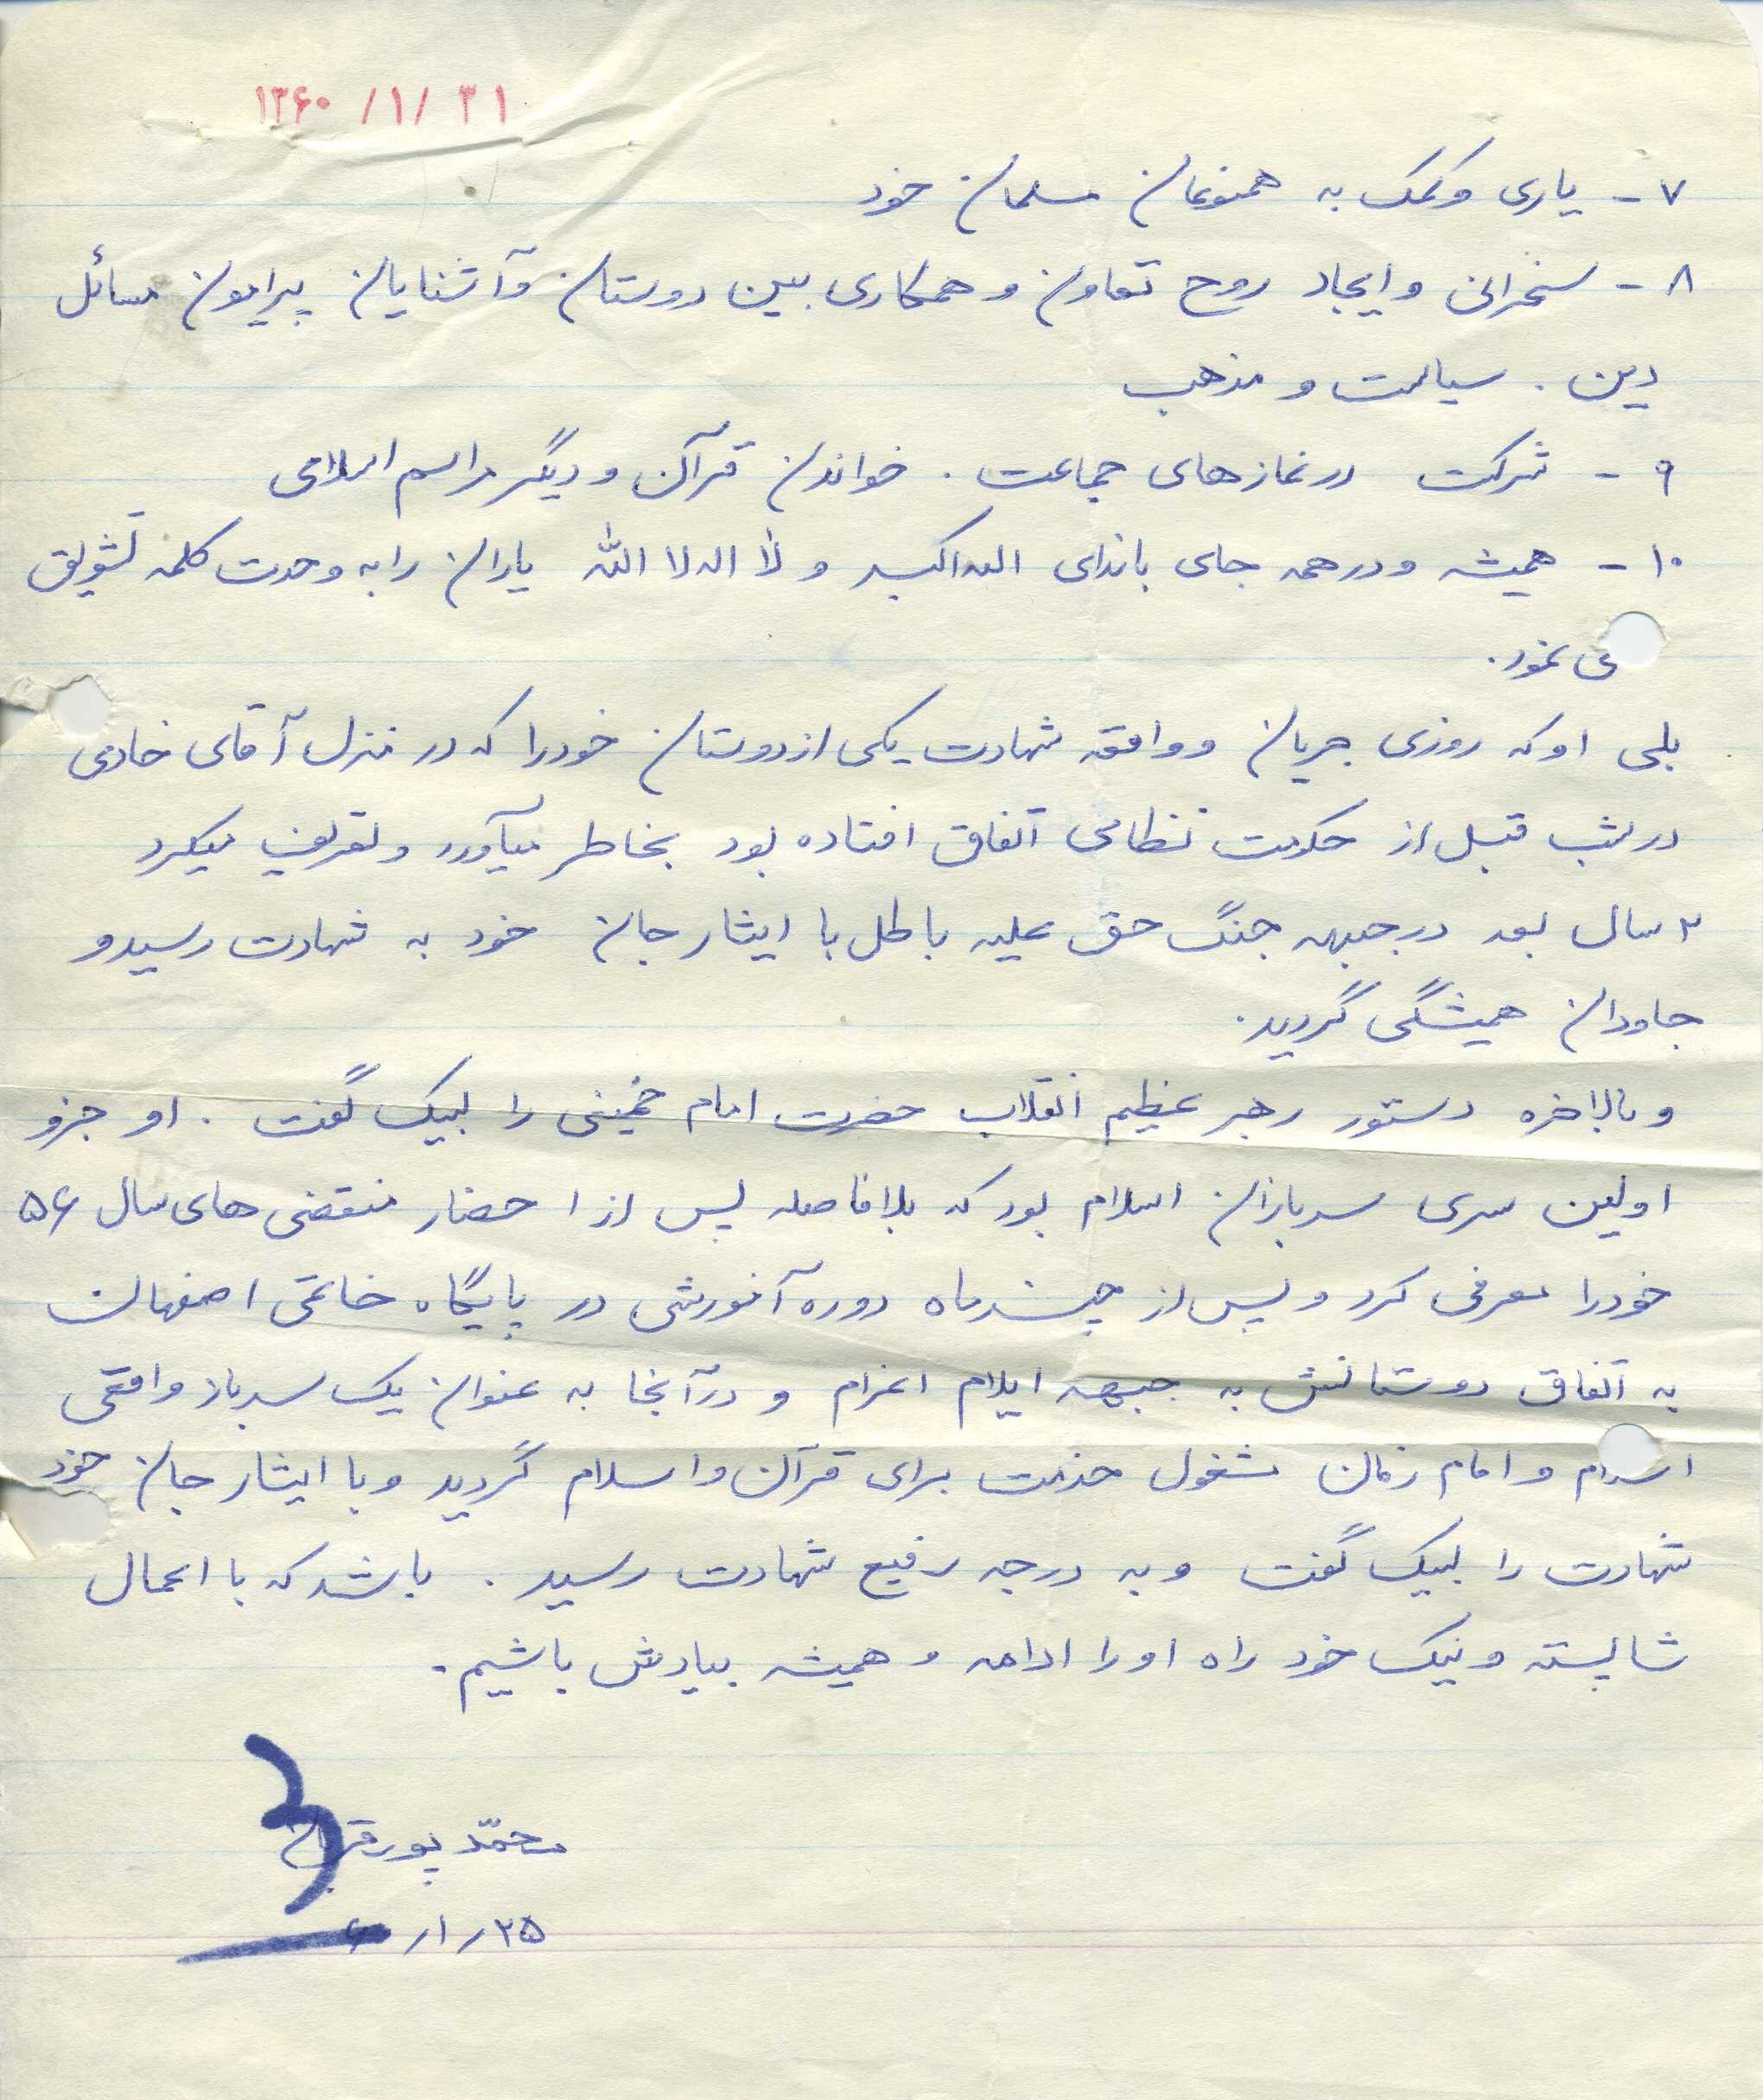 ۱۳۶۰ /۱/ ۳۱
۷ - یاری و کمک به همنوعان مسلمان خود
۸ - سخنرانی و ایجاد روح تعاون و همکاری بین دوستان و آشنایان پیرامون مسائل
دین . سیاست و مذهب
۹ - شرکت در نمازهای جماعت . خواندن قرآن و دیگر مراسم اسلامی
۱۰ - همیشه و در همه جای با ندای الله اکبر و لا اله الا الله یاران را به وحدت کلمه تشویق
می نمود.
بلی او که روزی جریان و واقعه شهادت یکی از دوستان خود را که در منزل آقای خادمی
در شب قبل از حکومت نظامی اتفاق افتاده بود بخاطر میآورد و تعریف میکرد
۲ سال بعد در جبهه جنگ حق علیه باطل با ایثار جان خود به شهادت رسید و
جاودان همیشگی گردید.
و بالاخره دستور رهبر عظیم انقلاب حضرت امام خمینی را لبیک گفت . او جزو
اولین سری سربازان اسلام بود که بلافاصله پس از احضار منقضی های سال ۵۶
خود را معرفی کرد و پس از چند ماه دوره آموزشی در پایگاه خاتمی اصفهان
به اتفاق دوستانش به جبهه ایلام اعزام و در آنجا به عنوان یک سرباز واقعی
اسلام و امام زمان مشغول خدمت برای قرآن و اسلام گردید و با ایثار جان خود
شهادت را لبیک گفت و به درجه رفیع شهادت رسید . باشد که با اعمال
شایسته و نیک خود راه او را ادامه و همیشه بیادش باشیم.
محمّد پور
۲۵ ر ۱ ر